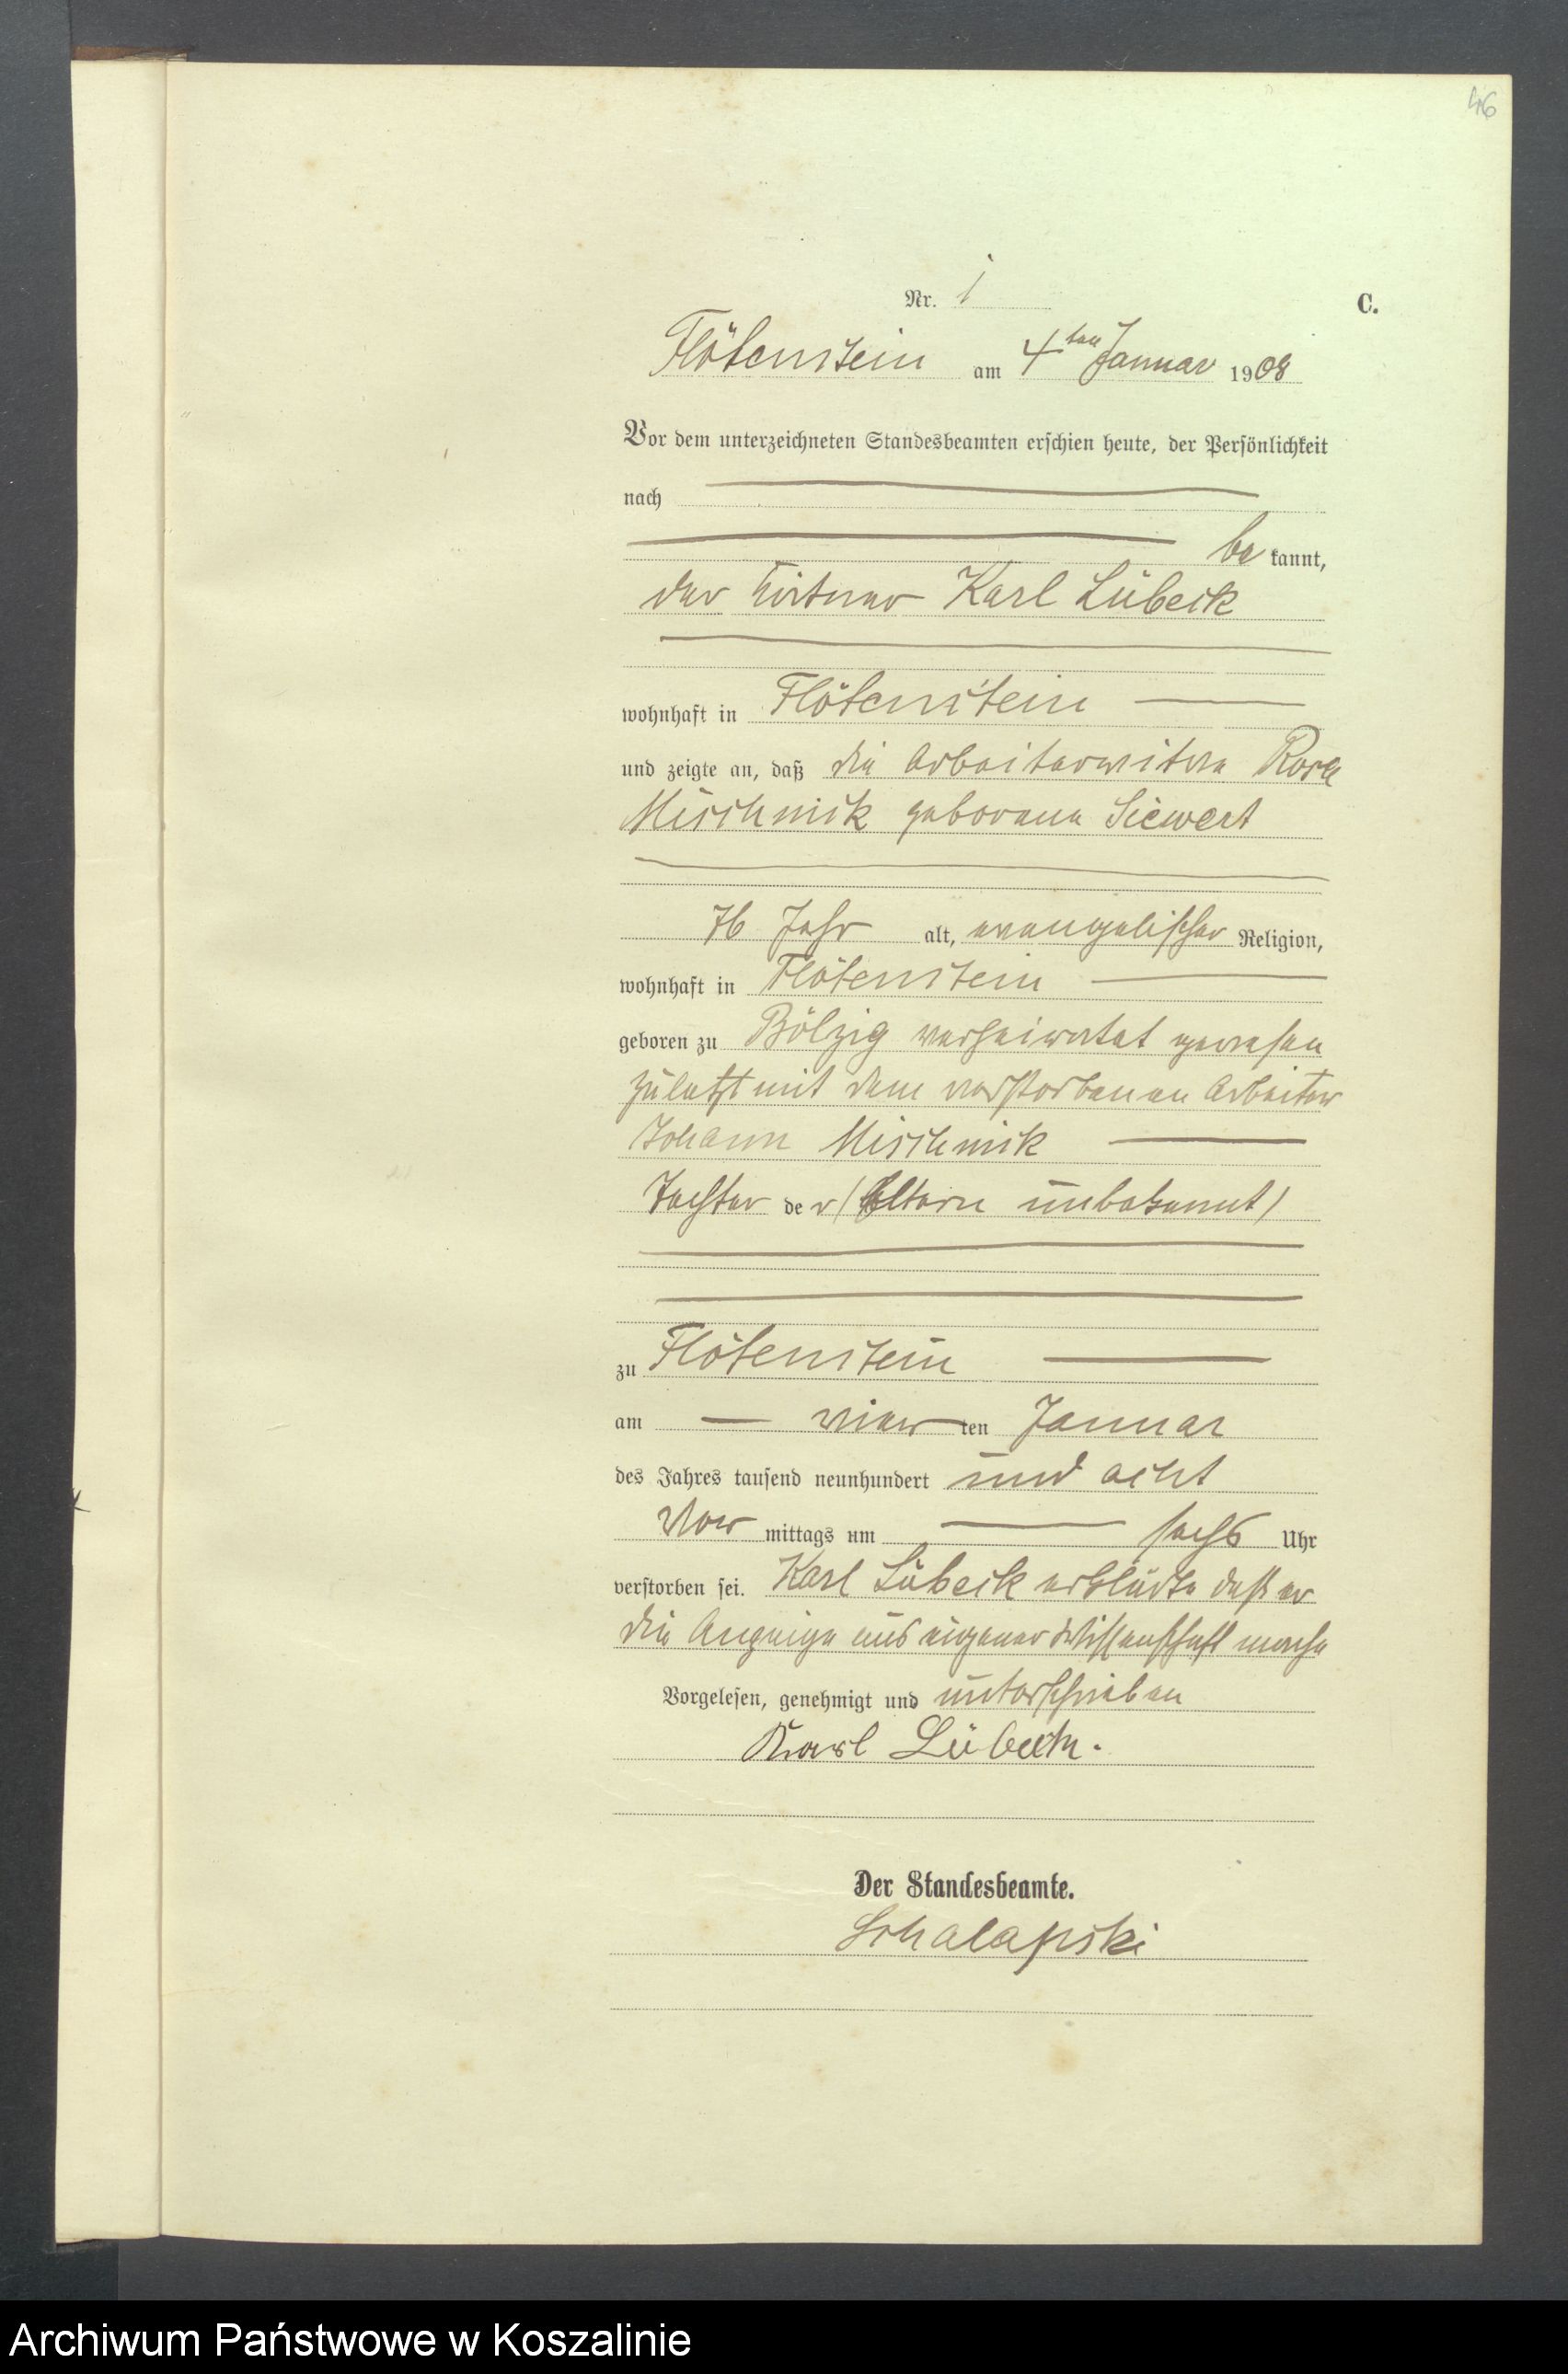 46
Nr. 1
C.
Flötenstein am 4ten Januar 1908
Vor dem unterzeichneten Standesbeamten erschien heute, der Persönlichkeit
nach
be kannt,
der Karl Lübeck
wohnhaft in Flötenstein
und zeigte an, daß die Arbeiterwitwe Rosa
Mischnick geborene Siewert
76 Jahr alt, evangelischer Religion,
wohnhaft in Flötenstein
geboren zu Bölzig verheiratet gewesen
zuletzt mit dem verstorbenen Arbeiter
Johann Mischnick
Tochter der (Eltern unbekannt)
zu Flötenstein
am vierten Januar
des Jahres tausend neunhundert und acht
Vor mittags um sechs Uhr
verstorben sei. Karl Lübeck erklärte daß er
die Anzeige aus eigener Wissenschaft mache
Vorgelesen, genehmigt und unterschrieben
Karl Lübeck.
Der Standesbeamte.
Schalapski
Archiwum Państwowe w Koszalinie